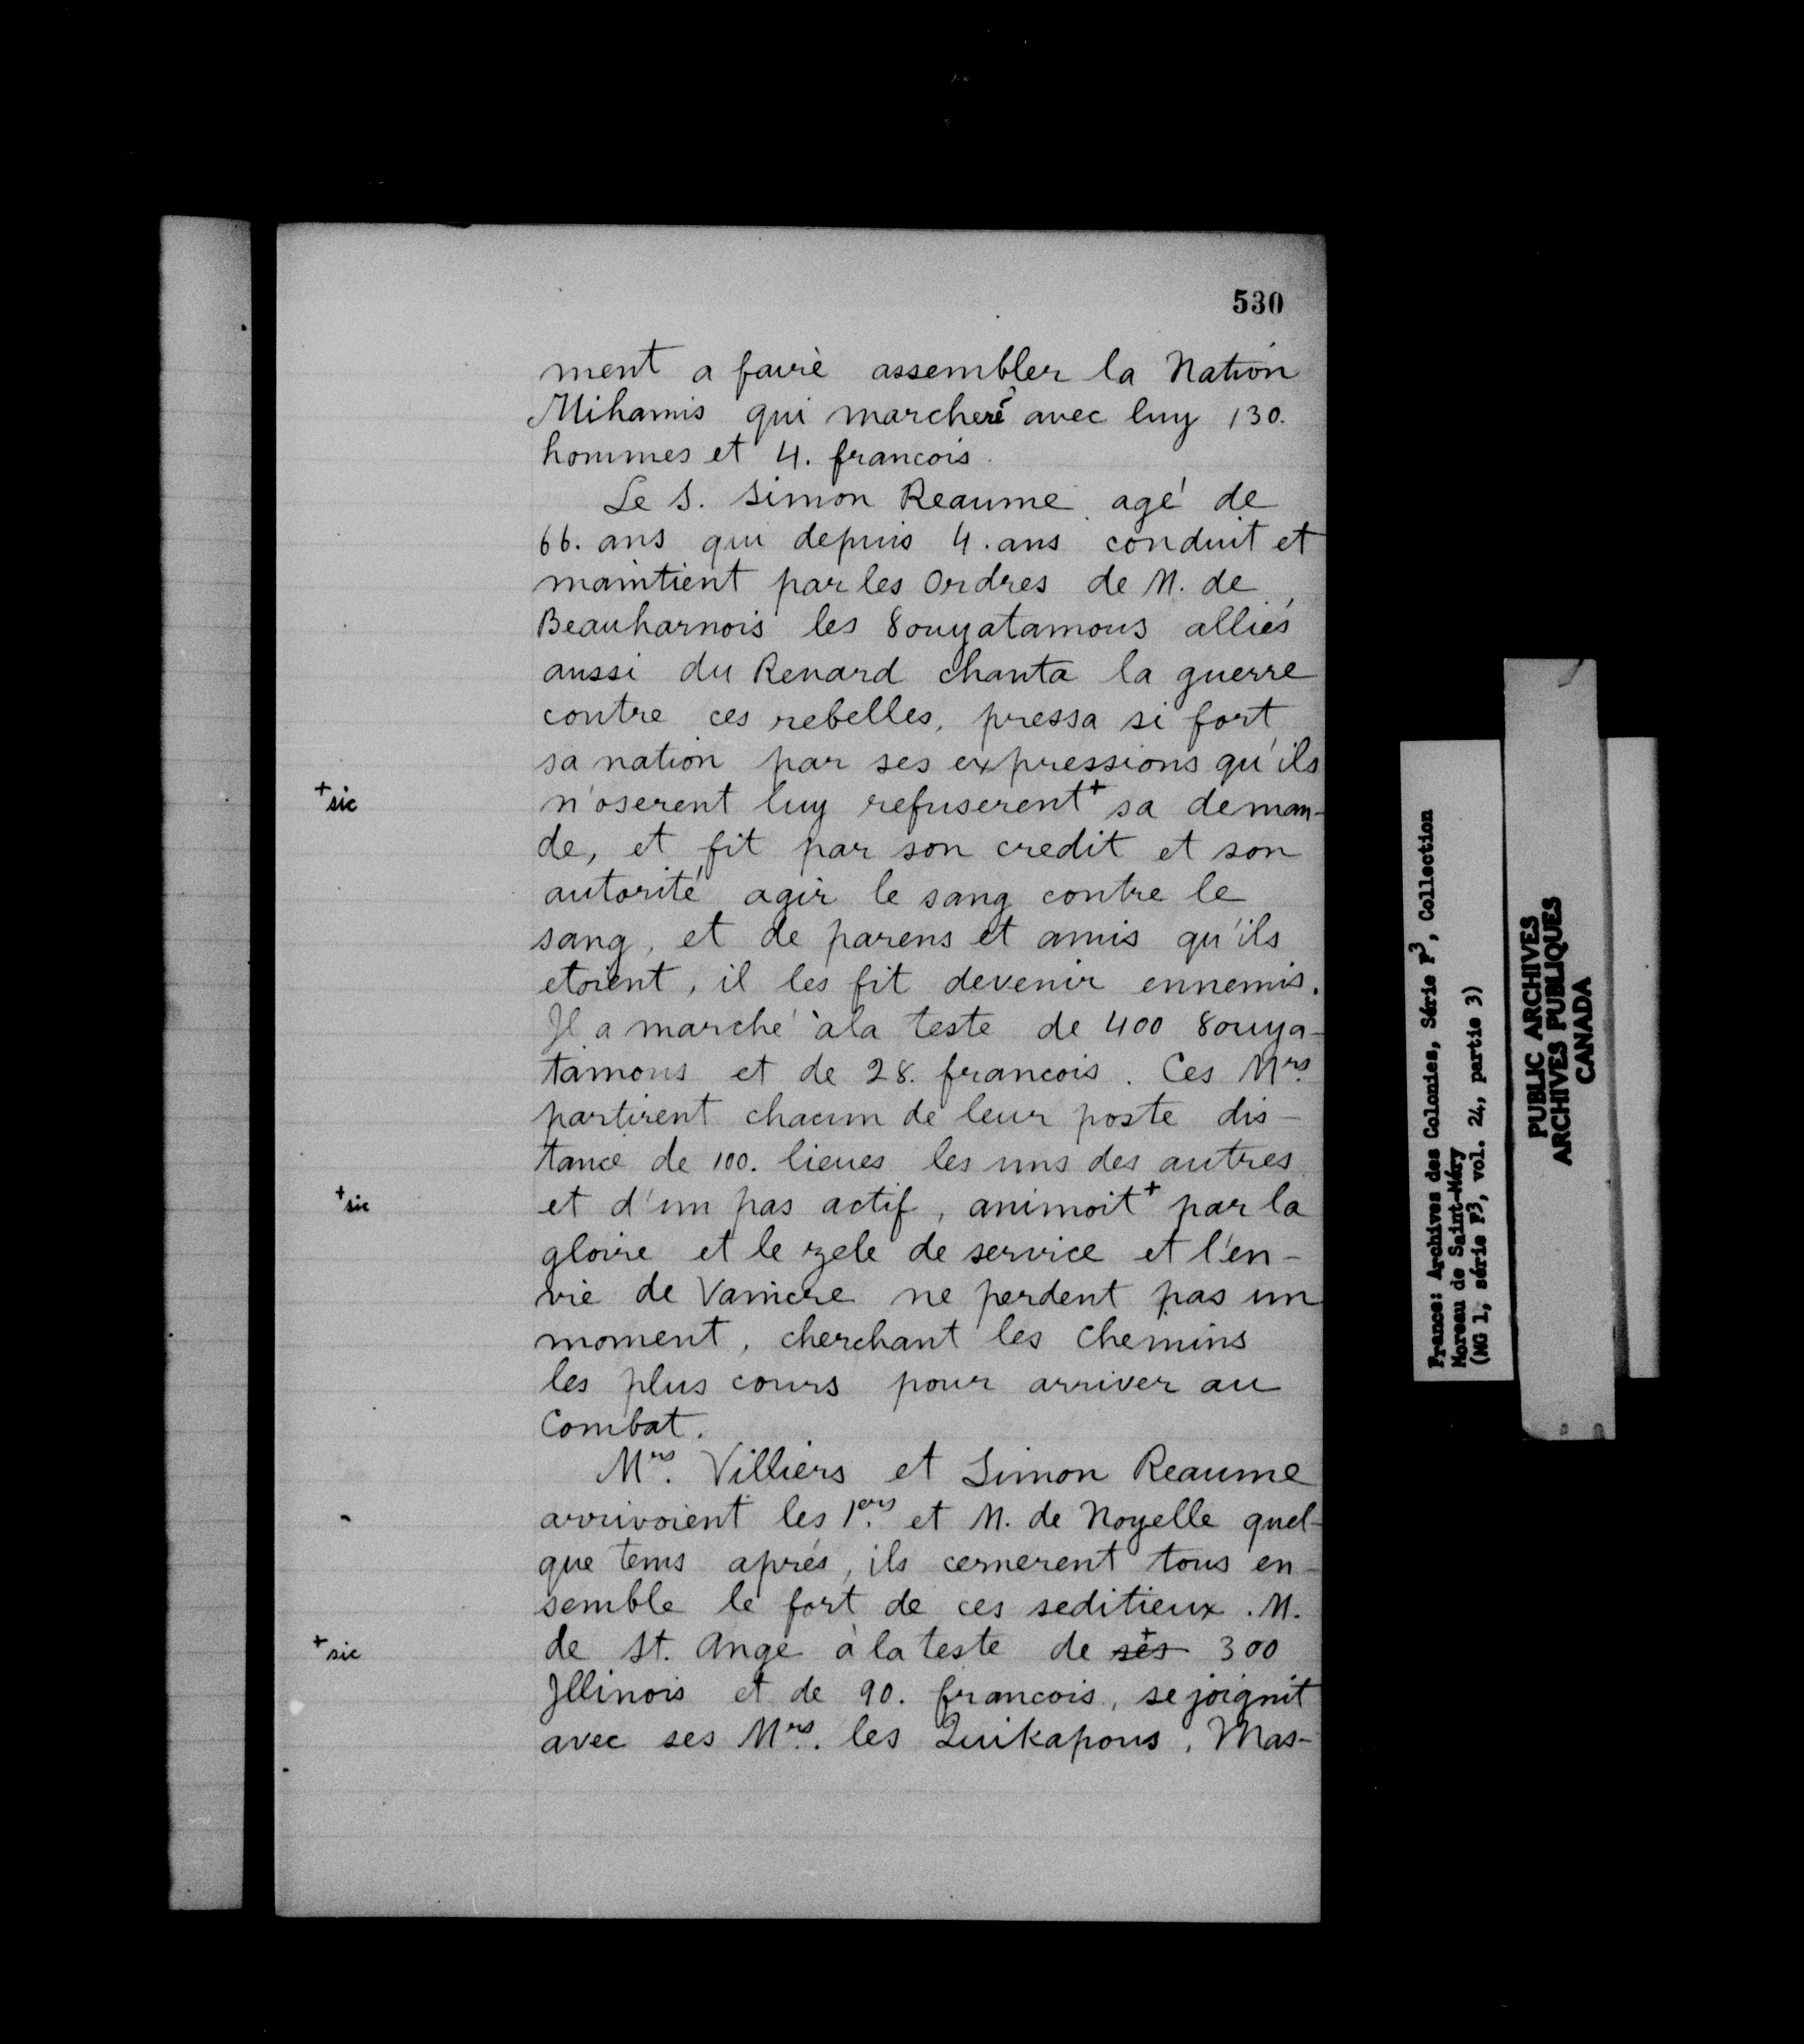 530
ment a faire assembler la Nation
Mihamis qui marcheré avec luy 130.
hommes et 4. francois.
Le S. Simon Reaume agé de
66. ans qui depuis 4. ans conduit et
maintient par les Ordres de M. de
Beauharnois les 8ouyatamous alliés
aussi du Renard chanta la guerre
contre ces rebelles, pressa si fort
sa nation par ses expressions qu'ils
+sic n'oserent luy refuserent+ sa deman-
de, et fit par son credit et son
autorité agir le sang contre le
sang, et de parens et amis qu'ils
etoient, il les fit devenir ennemis.
Il a marché à la teste de 400 8ouya-
tamous et de 28. francois. Ces Mrs.
partirent chacun de leur poste dis-
tance de 100. lieues les uns des autres
+sic et d'un pas actif, animoit+ par la
gloire et le zele de service et l'en-
vie de Vaincre ne perdent pas un
moment, cherchant les Chemins
les plus cours pour arriver au
Combat.
Mrs. Villiers et Simon Reaume
arrivoient les 1ers. et M. de Noyelle quel-
que tems aprés, ils cernerent tous en-
semble le fort de ces seditieux. M.
+sic de St. Ange à la teste de ses+ 300
Illinois et de 90. francois, se joignit
avec ses Mrs. les Quikapous, Mas-
France: Archives des Colonies, Série F3, Collection
Moreau de Saint-Méry
(MG 1, série F3, vol. 24, partie 3)
PUBLIC ARCHIVES
ARCHIVES PUBLIQUES
CANADA